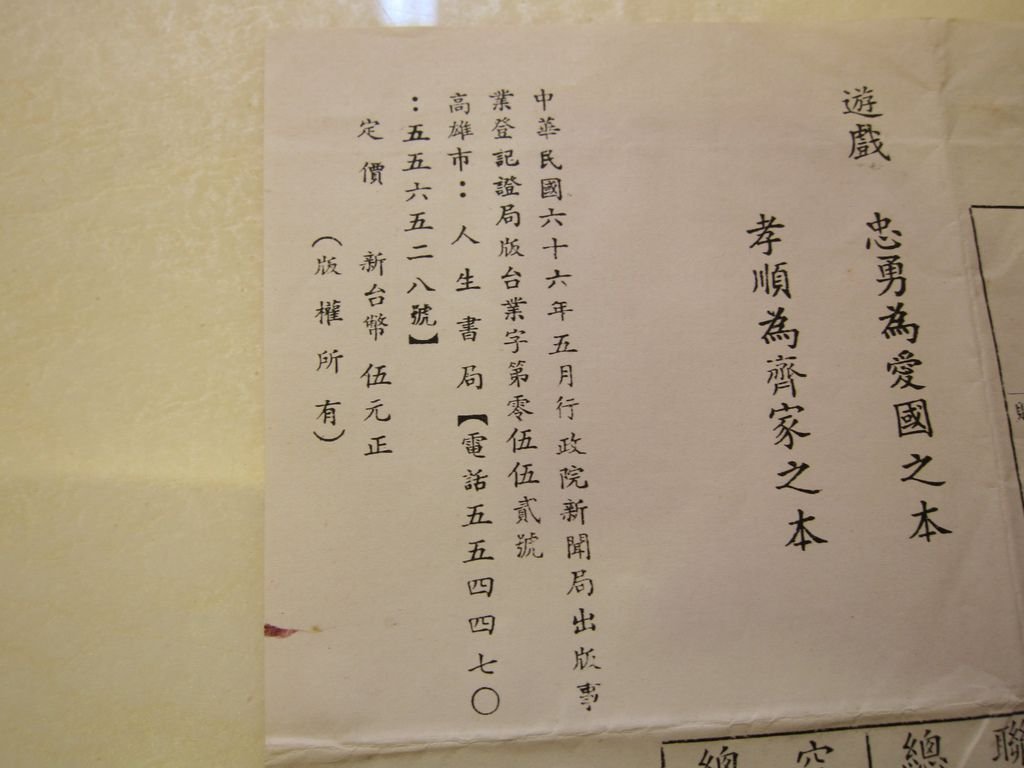 遊戲
忠勇為愛國之本
孝順為齊家之本
中華民國六十六年五月行政院新聞局出版事
業登記證局版台業字第零伍伍貳號
高雄市：人生書局【電話五五四四七〇
：五五六五二八號】
定價 新台幣伍元正
（版權所有）
總